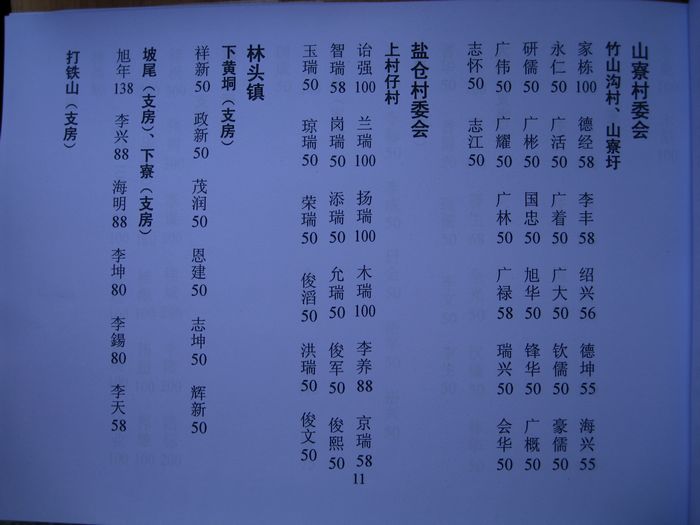 山寮村委会
竹山沟村、山寮圩
家栋100 德经58 李丰58 绍兴56 德坤55 海兴55
永仁50 广活50 广着50 广大50 钦儒50 豪儒50
研儒50 广彬50 国忠50 旭华50 锋华50 广概50
广伟50 广耀50 广林50 广禄58 瑞兴50 会华50
志怀50 志江50
盐仓村委会
上村仔村
诒强100 兰瑞100 扬瑞100 木瑞100 李养88 京瑞58
智瑞58 岗瑞50 添瑞50 允瑞50 俊军50 俊熙50
玉瑞50 琼瑞50 荣瑞50 俊滔50 洪瑞50 俊文50
林头镇
下黄垌（支房）
祥新50 政新50 茂润50 恩建50 志坤50 辉新50
坡尾（支房）、下寮（支房）
旭年138 李兴88 海明88 李坤80 李錫80 李天58
打铁山（支房）
11